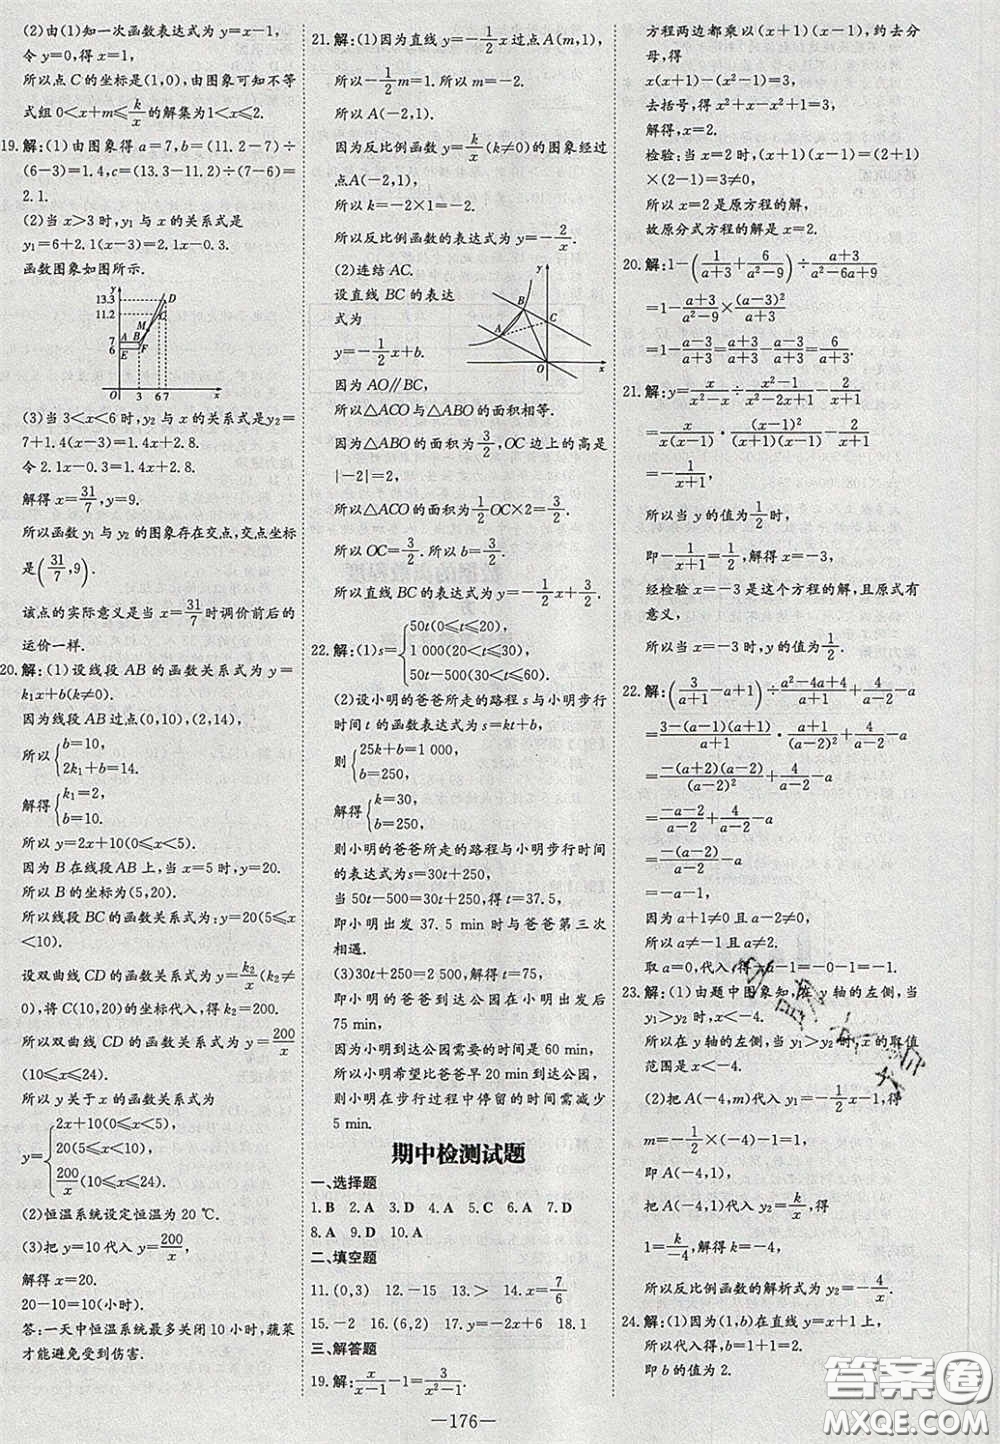 (2)由(1)知一次函数表达式为y=x-1,
令y=0,得x=1,
所以点C的坐标是(1,0),由图象可知不等
式组0<x+m≤k/x的解集为1<x≤2.
19.解:(1)由图象得a=7,b=(11.2-7)÷
(6-3)=1.4,c=(13.3-11.2)÷(7-6)=
2.1.
(2)当x>3时,y₁与x的关系式是
y₁=6+2.1(x-3)=2.1x-0.3.
函数图象如图所示.
y
13.3
11.2
7
6
D
C
M
A B
E F
O 3 6 7 x
(3)当3<x<6时,y₂与x的关系式y₂=
7+1.4(x-3)=1.4x+2.8.
令2.1x-0.3=1.4x+2.8.
解得x=31/7,y=9.
所以函数y₁与y₂的图象存在交点,交点坐标
是(31/7,9).
该点的实际意义是当x=31/7时调价前后的
运价一样.
20.解:(1)设线段AB的函数关系式为y=
k₁x+b(k≠0).
因为线段AB过点(0,10),(2,14),
所以{b=10,
2k₁+b=14.
解得{k₁=2,
b=10.
所以y=2x+10(0≤x<5).
因为B在线段AB上,当x=5时,y=20.
所以B的坐标为(5,20).
所以线段BC的函数关系式为y=20(5≤x
<10).
设双曲线CD的函数关系式为y=k₂/x(k₂≠
0),将C(10,20)的坐标代入,得k₂=200.
所以双曲线CD的函数关系式为y=200/x
(10≤x≤24).
所以y关于x的函数关系式为
y={2x+10(0≤x<5),
20(5≤x<10),
200/x(10≤x≤24).
(2)恒温系统设定恒温为20 ℃.
(3)把y=10代入y=200/x,
解得x=20.
20-10=10(小时).
答:一天中恒温系统最多关闭10小时,蔬菜
才能避免受到伤害.
21.解:(1)因为直线y=-1/2x过点A(m,1),
所以-1/2m=1.所以m=-2.
所以A(-2,1).
因为反比例函数y=k/x(k≠0)的图象经过
点A(-2,1),
所以k=-2×1=-2.
所以反比例函数的表达式为y=-2/x.
(2)连结AC.
设直线BC的表达
式为
y=-1/2x+b.
y
B
C
A
O x
因为AO∥BC,
所以△ACO与△ABO的面积相等.
因为△ABO的面积为3/2,OC边上的高是
|-2|=2,
所以△ACO的面积为1/2OC×2=3/2.
所以OC=3/2.所以b=3/2.
所以直线BC的表达式为y=-1/2x+3/2.
22.解:(1)s={50t(0≤t≤20),
1 000(20<t≤30),
50t-500(30<t≤60).
(2)设小明的爸爸所走的路程s与小明步行
时间t的函数表达式为s=kt+b,
则{25k+b=1 000,
b=250,
解得{k=30,
b=250,
则小明的爸爸所走的路程与小明步行时间
的表达式为s=30t+250,
当50t-500=30t+250,得t=37.5,
即小明出发37.5 min时与爸爸第三次
相遇.
(3)30t+250=2 500,解得t=75,
即小明的爸爸到达公园在小明出发后
75 min,
因为小明到达公园需要的时间是60 min,
所以小明希望比爸爸早20 min到达公园,
则小明在步行过程中停留的时间需减少
5 min.
期中检测试题
一、选择题
1.B 2.A 3.D 4.A 5.C 6.A 7.D
8.A 9.D 10.A
二、填空题
11.(0,3) 12.-15 13.> 14.x=7/6
15.-2 16.(6,2) 17.y=-2x+6 18.1
三、解答题
19.解:x/(x-1)-1=3/(x²-1).
—176—
方程两边都乘以(x+1)(x-1),约去分
母,得
x(x+1)-(x²-1)=3,
去括号,得x²+x-x²+1=3,
解得,x=2,
检验:当x=2时,(x+1)(x-1)=(2+1)
×(2-1)=3≠0,
所以x=2是原方程的解,
故原分式方程的解是x=2.
20.解:1-(1/(a+3)+6/(a²-9))÷(a+3)/(a²-6a+9)
=1-(a+3)/(a²-9)×(a-3)²/(a+3)
=1-(a-3)/(a+3)=(a+3)/(a+3)-(a-3)/(a+3)=6/(a+3).
21.解:y=x/(x²-x)÷(x²-1)/(x²-2x+1)-2/(x+1)
=x/(x(x-1))·(x-1)²/((x+1)(x-1))-2/(x+1)
=-1/(x+1),
所以当y的值为1/2时,
即-1/(x+1)=1/2,解得x=-3,
经检验x=-3是这个方程的解,且原式有
意义,
所以当x=-3时,y的值为1/2.
22.解:(3/(a+1)-a+1)÷(a²-4a+4)/(a+1)+4/(a-2)-a
=(3-(a-1)(a+1))/(a+1)·(a+1)/(a-2)²+4/(a-2)-a
=-(a+2)(a-2)/(a-2)²+4/(a-2)-a
=(-a-2)/(a-2)+4/(a-2)-a
=-(a-2)/(a-2)-a
=-a-1,
因为a+1≠0且a-2≠0,
所以a≠-1且a≠2.
取a=0,代入,得-a-1=-0-1=-1.
23.解:(1)由题中图象知,在y轴的左侧,当
y₁>y₂时,x<-4.
所以在y轴的左侧,当y₁>y₂时,x的取值
范围是x<-4.
(2)把A(-4,m)代入y₁=-1/2x-1,得
m=-1/2×(-4)-1=1,
即A(-4,1),
把A(-4,1)代入y₂=k/x,得
1=k/-4,解得k=-4,
所以反比例函数的解析式为y₂=-4/x.
24.解:(1)因为(1,b)在直线y=x+1上,
所以b=1+1=2,
即b的值为2.
答案圈
MXQE.COM